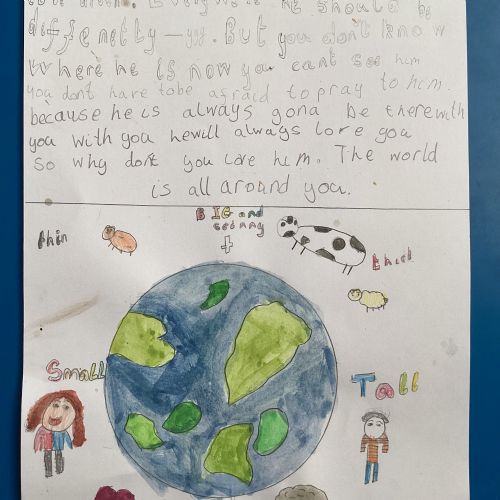 he should be
differently-yy. But you don't know
Where he is now you cant see him
you dont have to be afraid to pray to him.
because he is always gona be there with
you with you he will always love you
So why dont you love him. The world
is all around you.
BIG and
thin
thick
Small
Tall